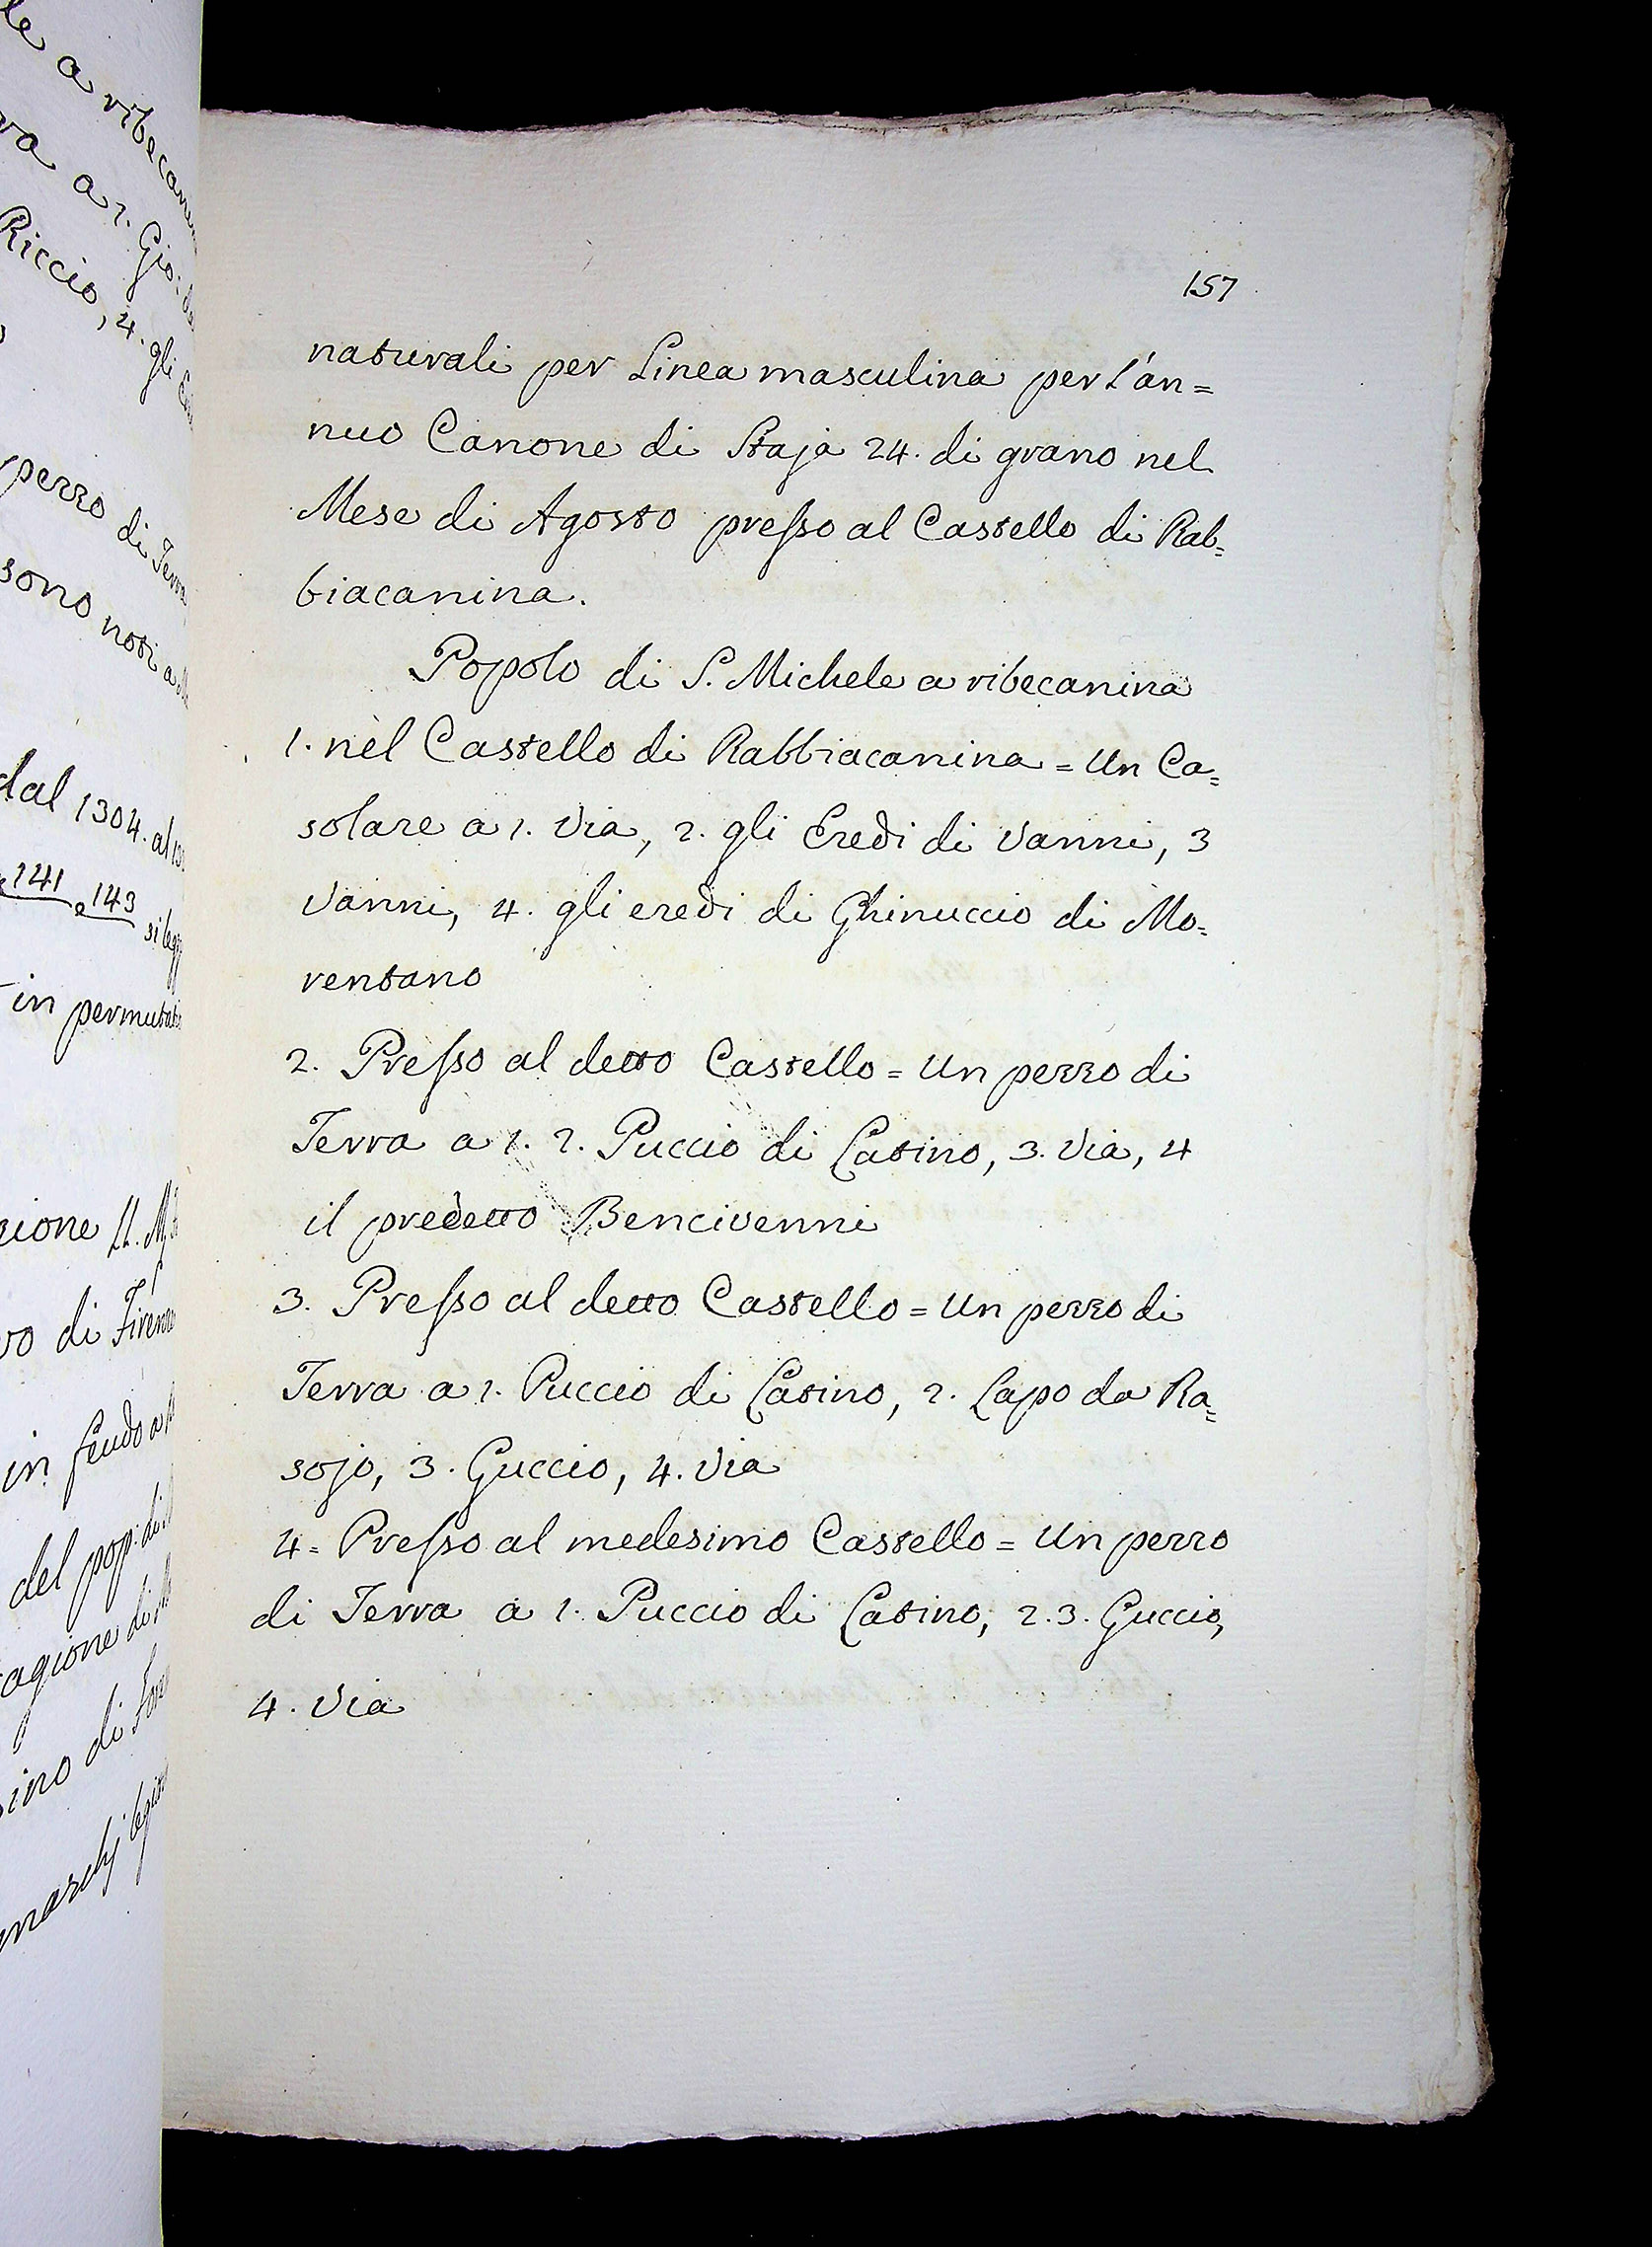 le a ribecani
va a 2. Gio: de
Riccio, 4. gli
pezzo di Terra
sono noti a
dal 1304. al
141 e 143 si legg
in permutat
zione
vo di Firenze
in feudo a
del pop: di
agione di
ino di
157
naturali per Linea masculina per l'an=
nuo Canone di Staja 24. di grano nel
Mese di Agosto presso al Castello di Rab=
biacanina.
Popolo di S. Michele a ribecanina
1. nel Castello di Rabbiacanina = Un Ca=
solare a 1. Via, 2. gli Eredi di Vanni, 3
Vanni, 4. gli eredi di Ghinuccio di Mo=
rentano
2. Presso al detto Castello = Un pezzo di
Terra a 1. 2. Puccio di Casino, 3. Via, 4
il predetto Bencivenni
3. Presso al detto Castello = Un pezzo di
Terra a 1. Puccio di Casino, 2. Lapo da Ra=
sojo, 3. Guccio, 4. Via
4. Presso al medesimo Castello = Un pezzo
di Terra a 1. Puccio di Casino, 2. 3. Guccio,
4. Via